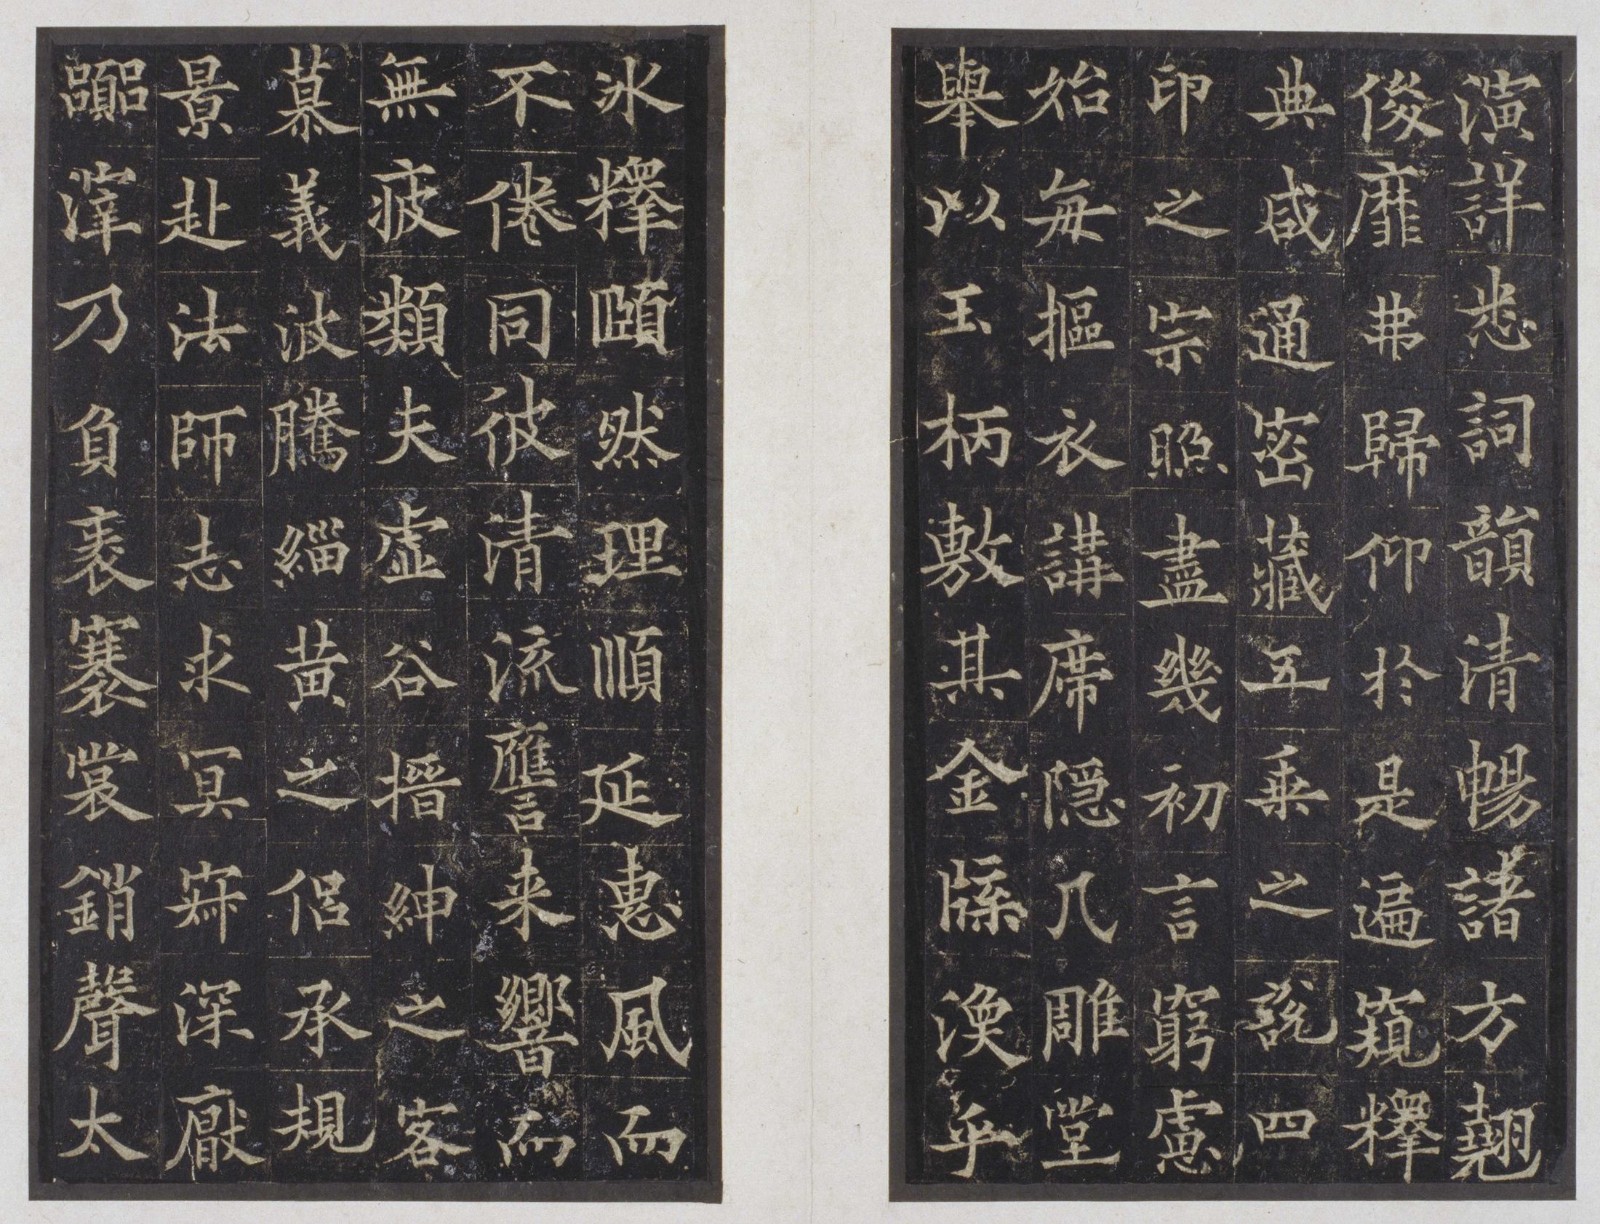 演詳悉詞韻清暢諸方翹
俊靡弗歸仰於是遍窺釋
典咸通密藏五乘之說四
印之宗照盡幾初言窮慮
始每摳衣講席隱几雕堂
舉以玉柄敷其金牒渙乎
氷釋賾然理順延惠風而
不倦同彼清流應言來響而
無疲類夫虛谷搢紳之客
慕義波騰緇黃之侶承規
景赴法師志求冥寂深厭
囂滓乃負袠褰裳銷聲太